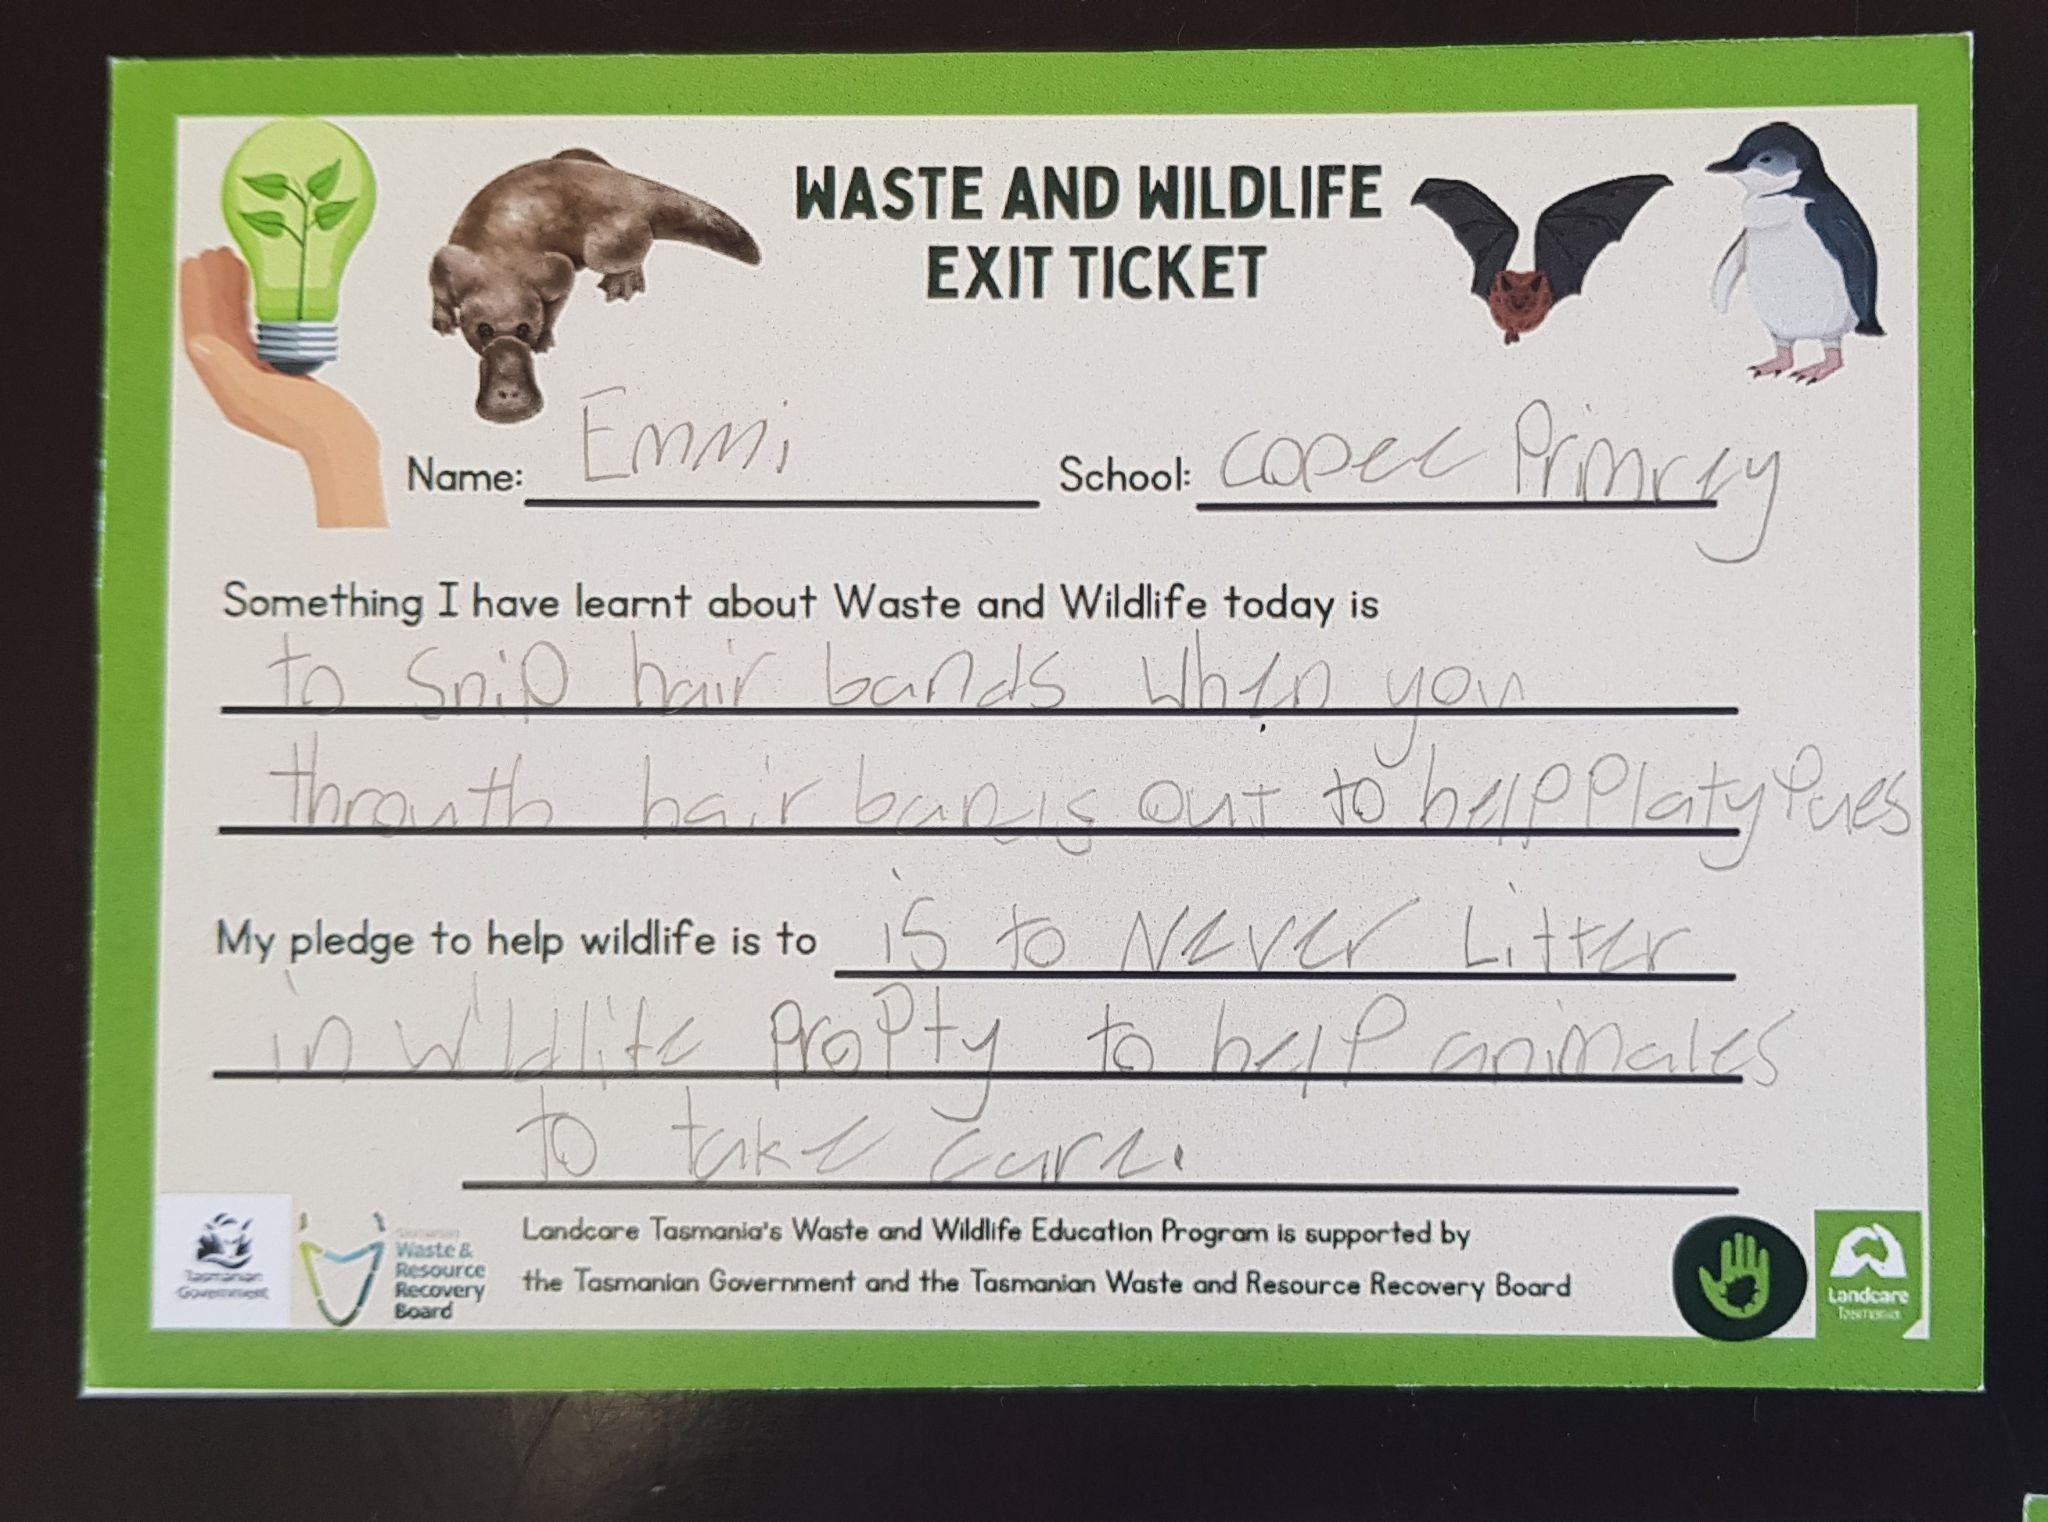 WASTE AND WILDLIFE
EXIT TICKET
Name: Emmi School: copee Primrey
Something I have learnt about Waste and Wildlife today is
to snip hair bands when you
throuth hair bands out to help Platypues
My pledge to help wildlife is to is to Never Litter
in wildlife propty to help animales
to take care.
Tasmanian Government
Tasmanian Waste & Resource Recovery Board
Landcare Tasmania's Waste and Wildlife Education Program is supported by
the Tasmanian Government and the Tasmanian Waste and Resource Recovery Board
Landcare
Tasmania